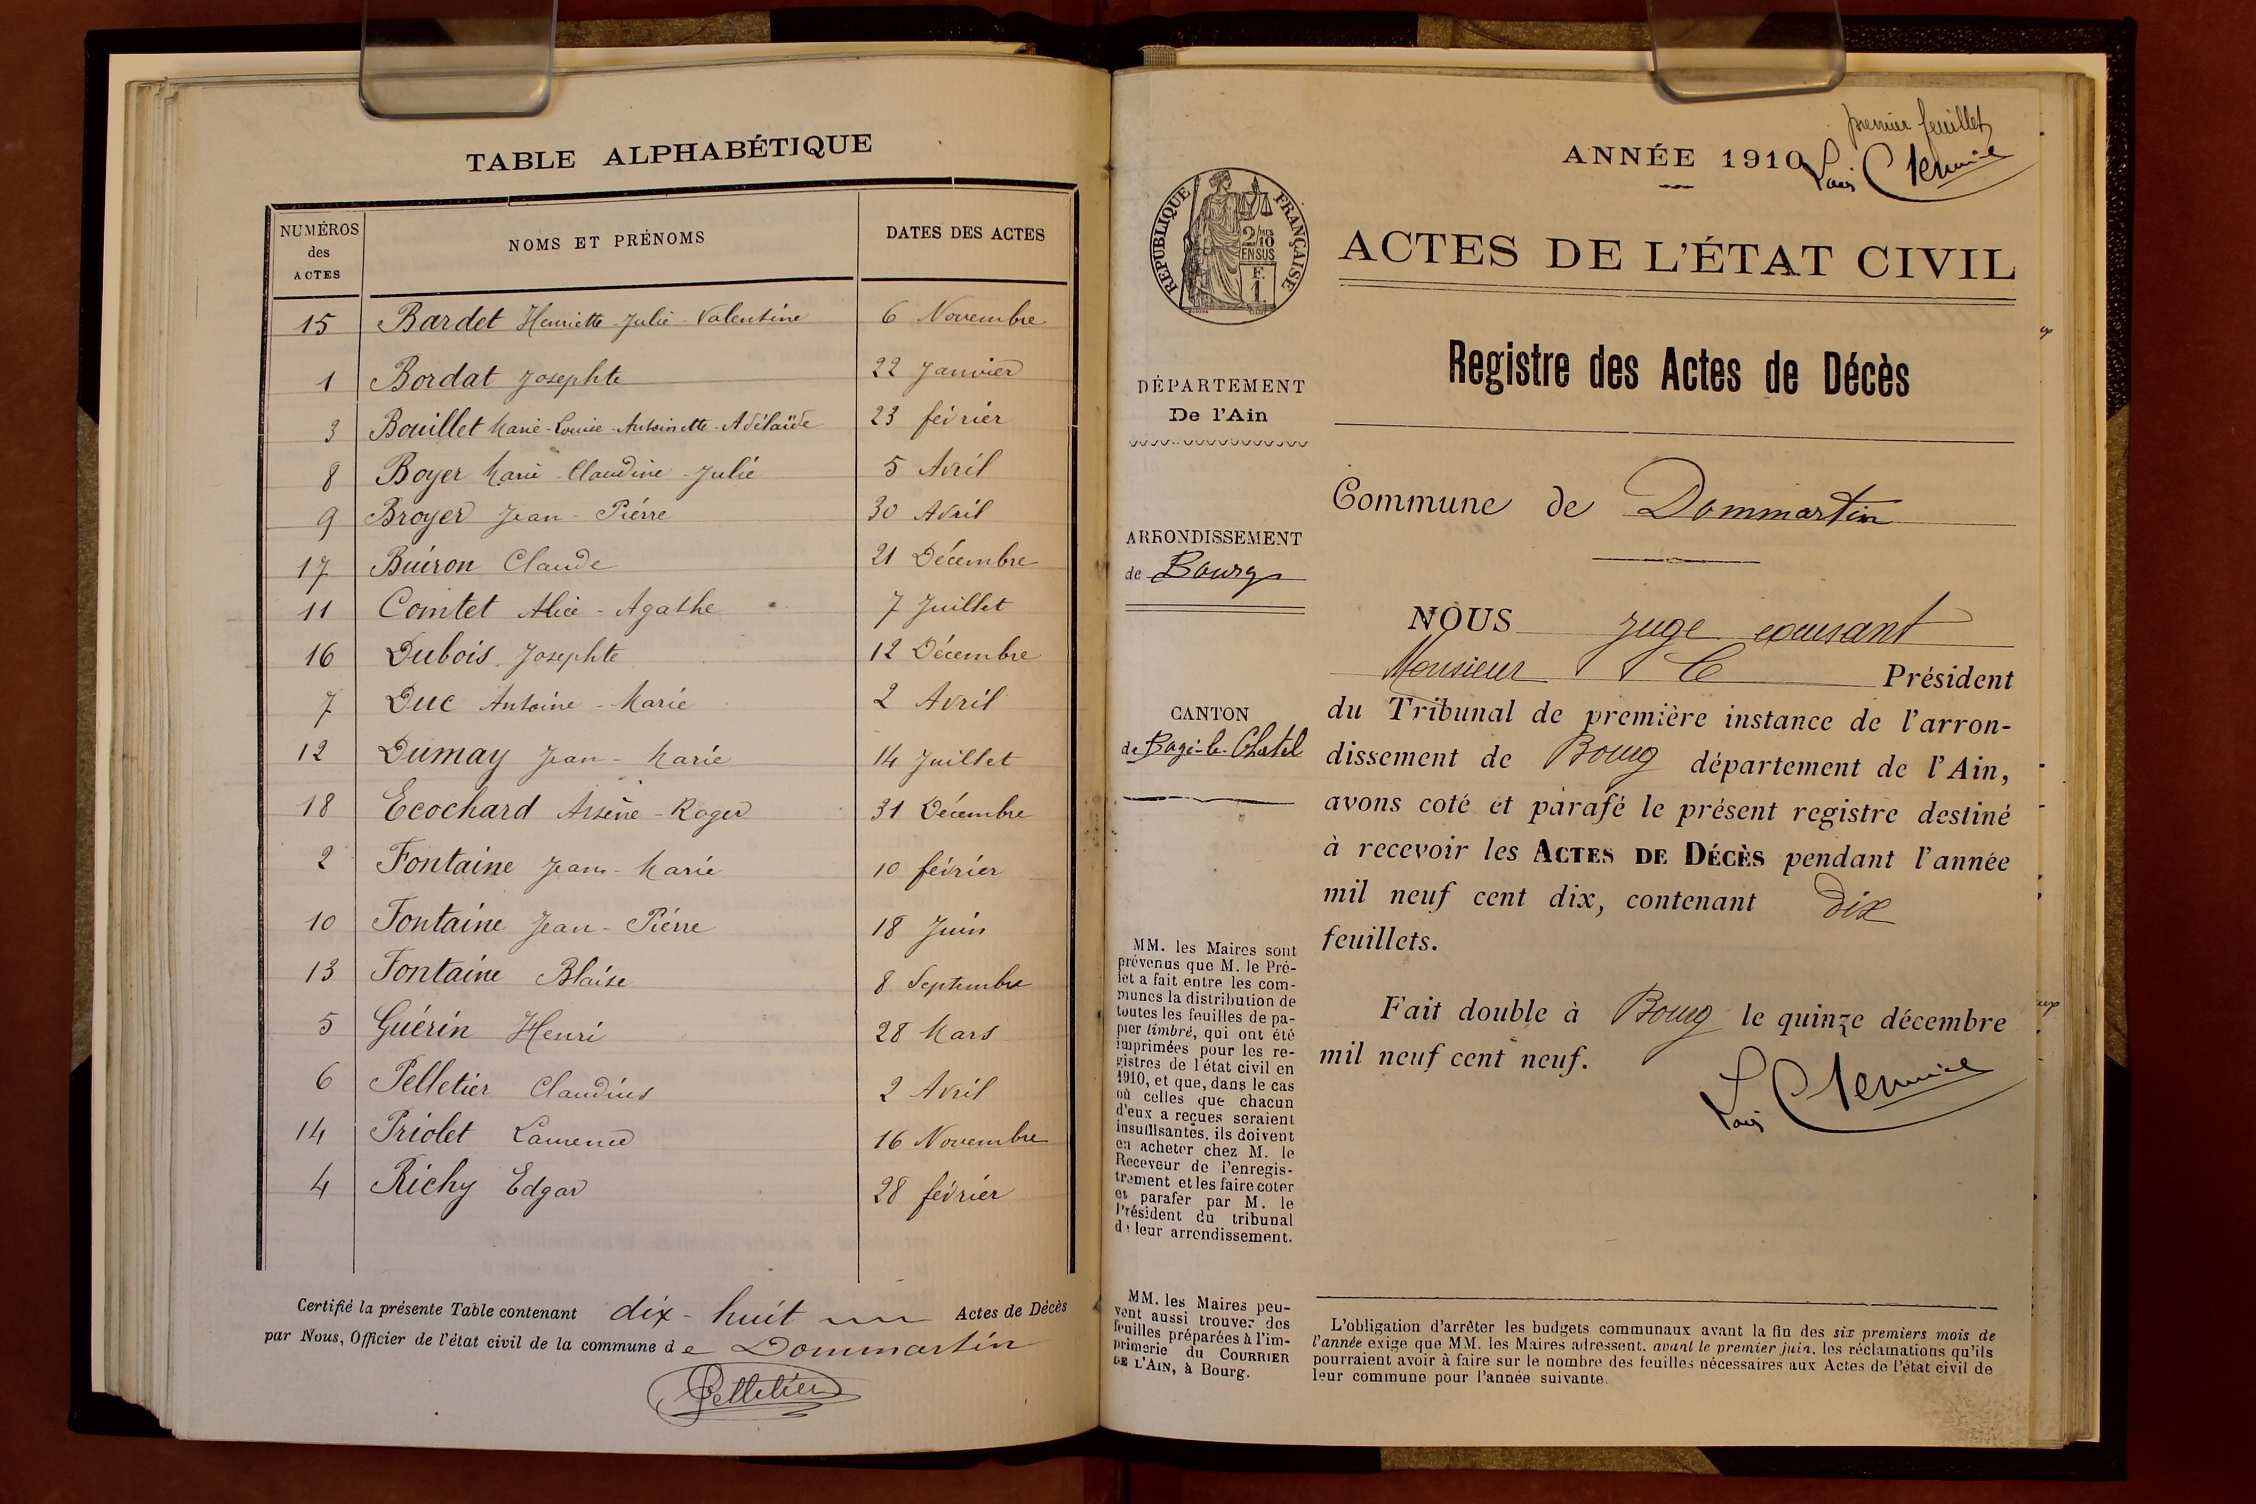 TABLE ALPHABÉTIQUE
NUMÉROS des ACTES
NOMS ET PRÉNOMS
DATES DES ACTES
15 Bardet Henriette-Julie-Valentine 6 Novembre
1 Bordat Josephte 22 Janvier
3 Bouillet Marie-Louise-Antoinette-Adélaïde 23 février
8 Boyer Marie-Claudine-Julie 5 Avril
9 Broyer Jean-Pierre 30 Avril
17 Buiron Claude 21 Décembre
11 Comtet Alice-Agathe 7 Juillet
16 Dubois Josephte 12 Décembre
7 Duc Antoine-Marie 2 Avril
12 Dumay Jean-Marie 14 Juillet
18 Ecochard Arsène-Roger 31 Décembre
2 Fontaine Jean-Marie 10 février
10 Fontaine Jean-Pierre 18 Juin
13 Fontaine Blaise 8 Septembre
5 Guérin Henri 28 Mars
6 Pelletier Claudius 2 Avril
14 Priolet Laurence 16 Novembre
4 Richy Edgar 28 février
Certifié la présente Table contenant dix-huit Actes de Décès
par Nous, Officier de l'état civil de la commune de Dommartin
Pelletier
premier feuillet
ANNÉE 1910
Louis
RÉPUBLIQUE FRANÇAISE
2/10 MES
EN SUS
F.
1
ACTES DE L'ÉTAT CIVIL
Registre des Actes de Décès
DÉPARTEMENT
De l'Ain
ARRONDISSEMENT
de Bourg
CANTON
de Bagé-le-Châtel
MM. les Maires sont
prévenus que M. le Pré-
fet a fait entre les com-
munes la distribution de
toutes les feuilles de pa-
pier timbré, qui ont été
imprimées pour les re-
gistres de l'état civil en
1910, et que, dans le cas
où celles que chacun
d'eux a reçues seraient
insuffisantes, ils doivent
en acheter chez M. le
Receveur de l'enregis-
trement et les faire coter
et parafer par M. le
Président du tribunal
de leur arrondissement.
MM. les Maires peu-
vent aussi trouver des
feuilles préparées à l'im-
primerie du COURRIER
DE L'AIN, à Bourg.
Commune de Dommartin
NOUS Juge
Monsieur le Président
du Tribunal de première instance de l'arron-
dissement de Bourg département de l'Ain,
avons coté et parafé le présent registre destiné
à recevoir les ACTES DE DÉCÈS pendant l'année
mil neuf cent dix, contenant Dix
feuillets.
Fait double à Bourg le quinze décembre
mil neuf cent neuf.
Louis
L'obligation d'arrêter les budgets communaux avant la fin des six premiers mois de
l'année exige que MM. les Maires adressent, avant le premier juin, les réclamations qu'ils
pourraient avoir à faire sur le nombre des feuilles nécessaires aux Actes de l'état civil de
leur commune pour l'année suivante.